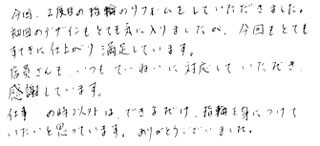 今回、2度目の指輪のリフォームをしていただきました。
初回のデザインもとても気に入りましたが、今回もとても
すてきに仕上がり満足しています。
店員さんも、いつもていねいに対応していただき、
感謝しています。
仕事 の時以外は、できるだけ、指輪を身につけて
いたいと思っています。ありがとうございました。